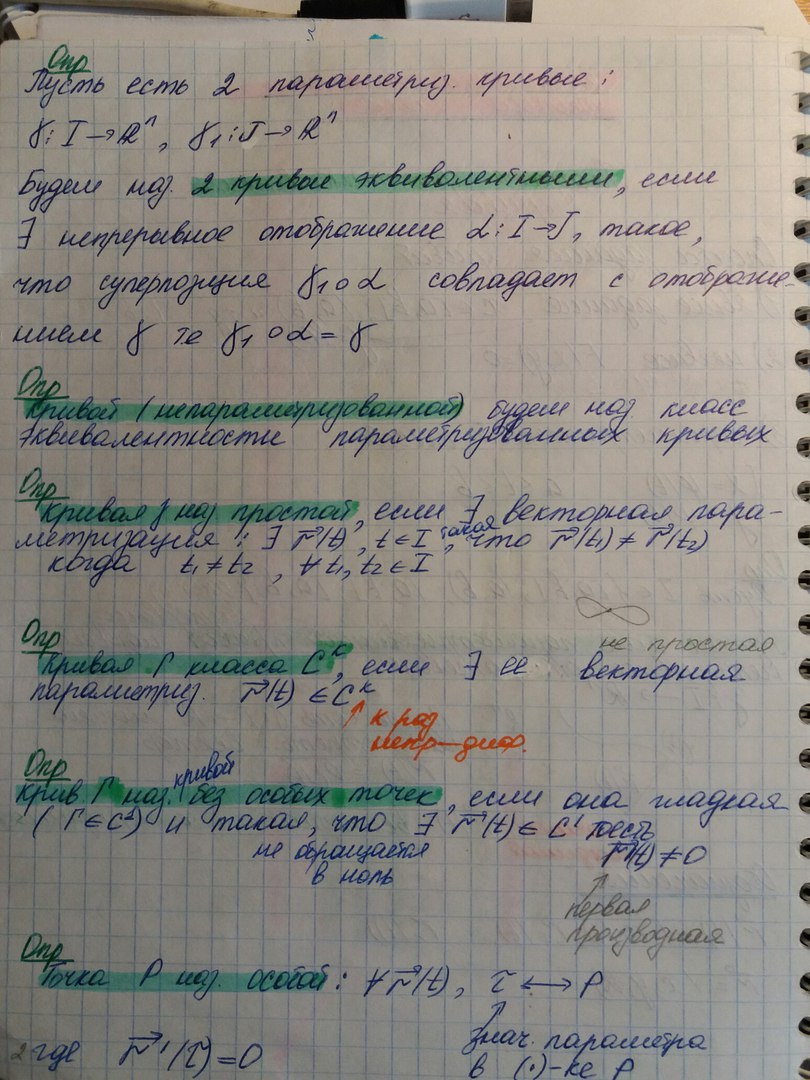 Опр
Пусть есть 2 параметриз. кривые:
γ: I → ℝⁿ, γ₁: J → ℝⁿ
Будем наз. 2 кривые эквивалентными, если
∃ непрерывное отображение α: I → J, такое,
что суперпозиция γ₁∘α совпадает с отображе-
нием γ те γ₁∘α = γ
Опр
Кривой (непараметризованной) будем наз класс
эквивалентности параметризованных кривых
Опр
Кривая γ наз простой, если ∃ векторная пара-
метризация: ∃ r⃗(t), t ∈ I, такая что r⃗(t₁) ≠ r⃗(t₂)
когда t₁ ≠ t₂, ∀ t₁, t₂ ∈ I
∞
не простая
Опр
Кривая Г класса Cᵏ, если ∃ ее векторная
параметриз. r⃗(t) ∈ Cᵏ
↑ к раз
непр-диф.
Опр
Крив Г наз. кривой без особых точек, если она гладкая
(Г ∈ C¹) и такая, что ∃ r⃗(t) ∈ C¹ тоесть
не обращается r⃗'(t) ≠ 0
в ноль
↑
первая
производная
Опр
Точка P наз. особой: ∀ r⃗(t), τ ⟷ P
↑
знач. параметра
где r⃗'(τ) = 0
в (·)-ке P